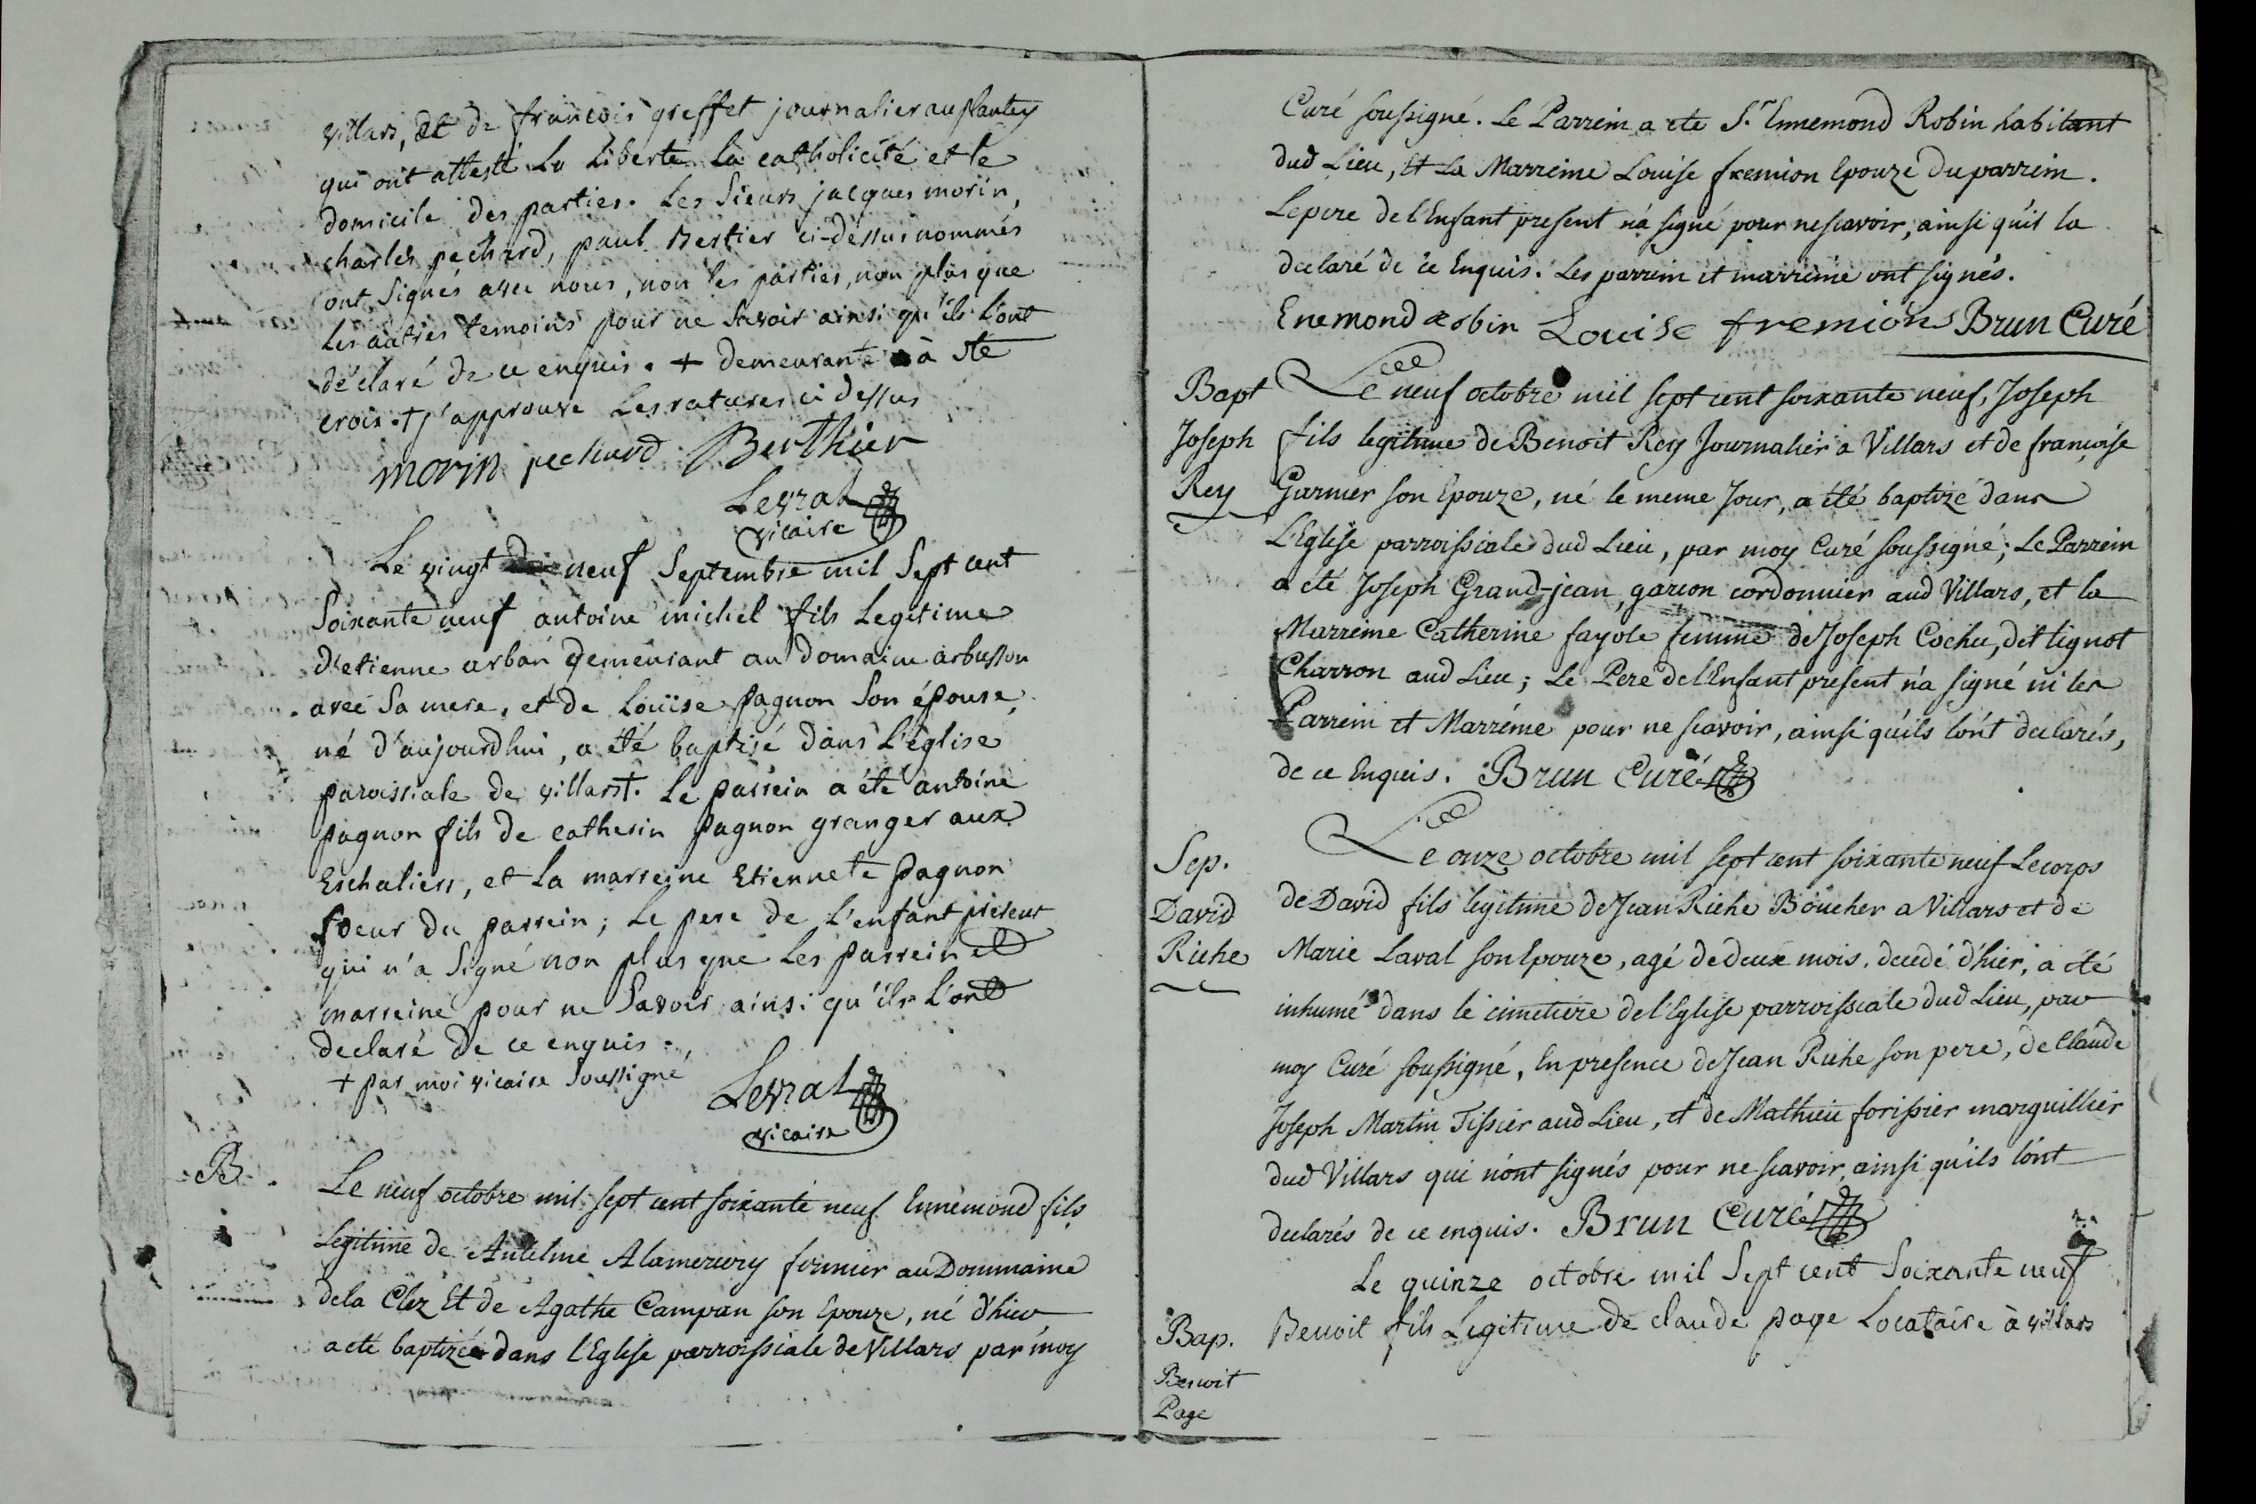 villars, et de francois greffet journalier au plantey
qui ont attesté la liberté la catholicité et le
domicile des parties. Les Sieurs jacques morin,
charles pechard, paul Bertier ci-dessus nommés
ont Signés avec nous, non les parties, non plus que
les autres temoins pour ne Savoir ainsi qu'ils l'ont
déclaré de ce enquis. + demeurante à ste
croix. + j'approuve les ratures ci dessus
morin pechard Berthier
Levrat
vicaire
Le vingt neuf Septembre mil Sept cent
Soixante neuf antoine michel fils Legitime
d'etienne arban demeurant au domaine arbusson
avec Sa mere, et de Louise pagnon Son épouse,
né d'aujourdhui, a été baptisé dans L'église
paroissiale de villars +. Le parrein a été antoine
pagnon fils de catherin pagnon granger aux
Eschaliers, et La marreine Etiennete pagnon
soeur du parrein; Le pere de L'enfant présent
qui n'a Signé non plus que Les parrein et
marreine pour ne Savoir ainsi qu'ils L'ont
declaré de ce enquis.
+ par moi vicaire Soussigné
Levrat
vicaire
B
Le neuf octobre mil sept cent soixante neuf Ennemond fils
Legitime de Antelme Alamercery fermier au Dommaine
dela Clez Et de Agathe Campan son Epouze, né d'hier
a eté baptizé dans l'Eglise parroissiale de Villars par moy
Curé soussigné. Le Parrein a eté Sr. Ennemond Robin habitant
dud Lieu, Et La Marreine Louise fremion Epouze du parrein.
Le pere de l'Enfant present n'a signé pour ne scavoir, ainsi qu'il la
declaré de ce Enquis. Les parrein et marreine ont signés.
Enemond robin Louise fremion Brun Curé
Bapt
Joseph
Rey
Le neuf octobre mil sept cent soixante neuf, Joseph
fils legitime de Benoit Rey Journalier a Villars et de françoise
Garnier son Epouze, né le meme Jour, a été baptizé dans
L'Eglise parroissiale dud Lieu, par moy Curé soussigné; Le Parrein
a été Joseph Grand-jean, garcon cordonnier aud Villars, et la
Marreine Catherine fayole femme de Joseph Cochu, dit lignot
Charron aud Lieu; Le Pere de l'Enfant present n'a signé ni les
Parrein et Marréine pour ne scavoir, ainsi qu'ils lont declarés,
de ce Enquis. Brun Curé
Sep.
David
Riche
Le onze octobre mil sept cent soixante neuf Le corps
de David fils legitime de Jean Riche Boucher a Villars et de
Marie Laval son Epouze, agé de deux mois, decedé d'hier, a eté
inhumé dans le cimetiere de l'Eglise parroissiale dud Lieu, par
moy Curé soussigné, En presence de Jean Riche son pere, de Claude
Joseph Martin Tissier aud Lieu, et de Mathieu forissier marguillier
dud Villars qui n'ont signés pour ne scavoir, ainsi qu'ils l'ont
declarés de ce enquis. Brun Curé
Bap.
Benoit
Page
Le quinze octobre mil Sept cent Soixante neuf
Benoit fils Legitime de claude page Locataire à villars